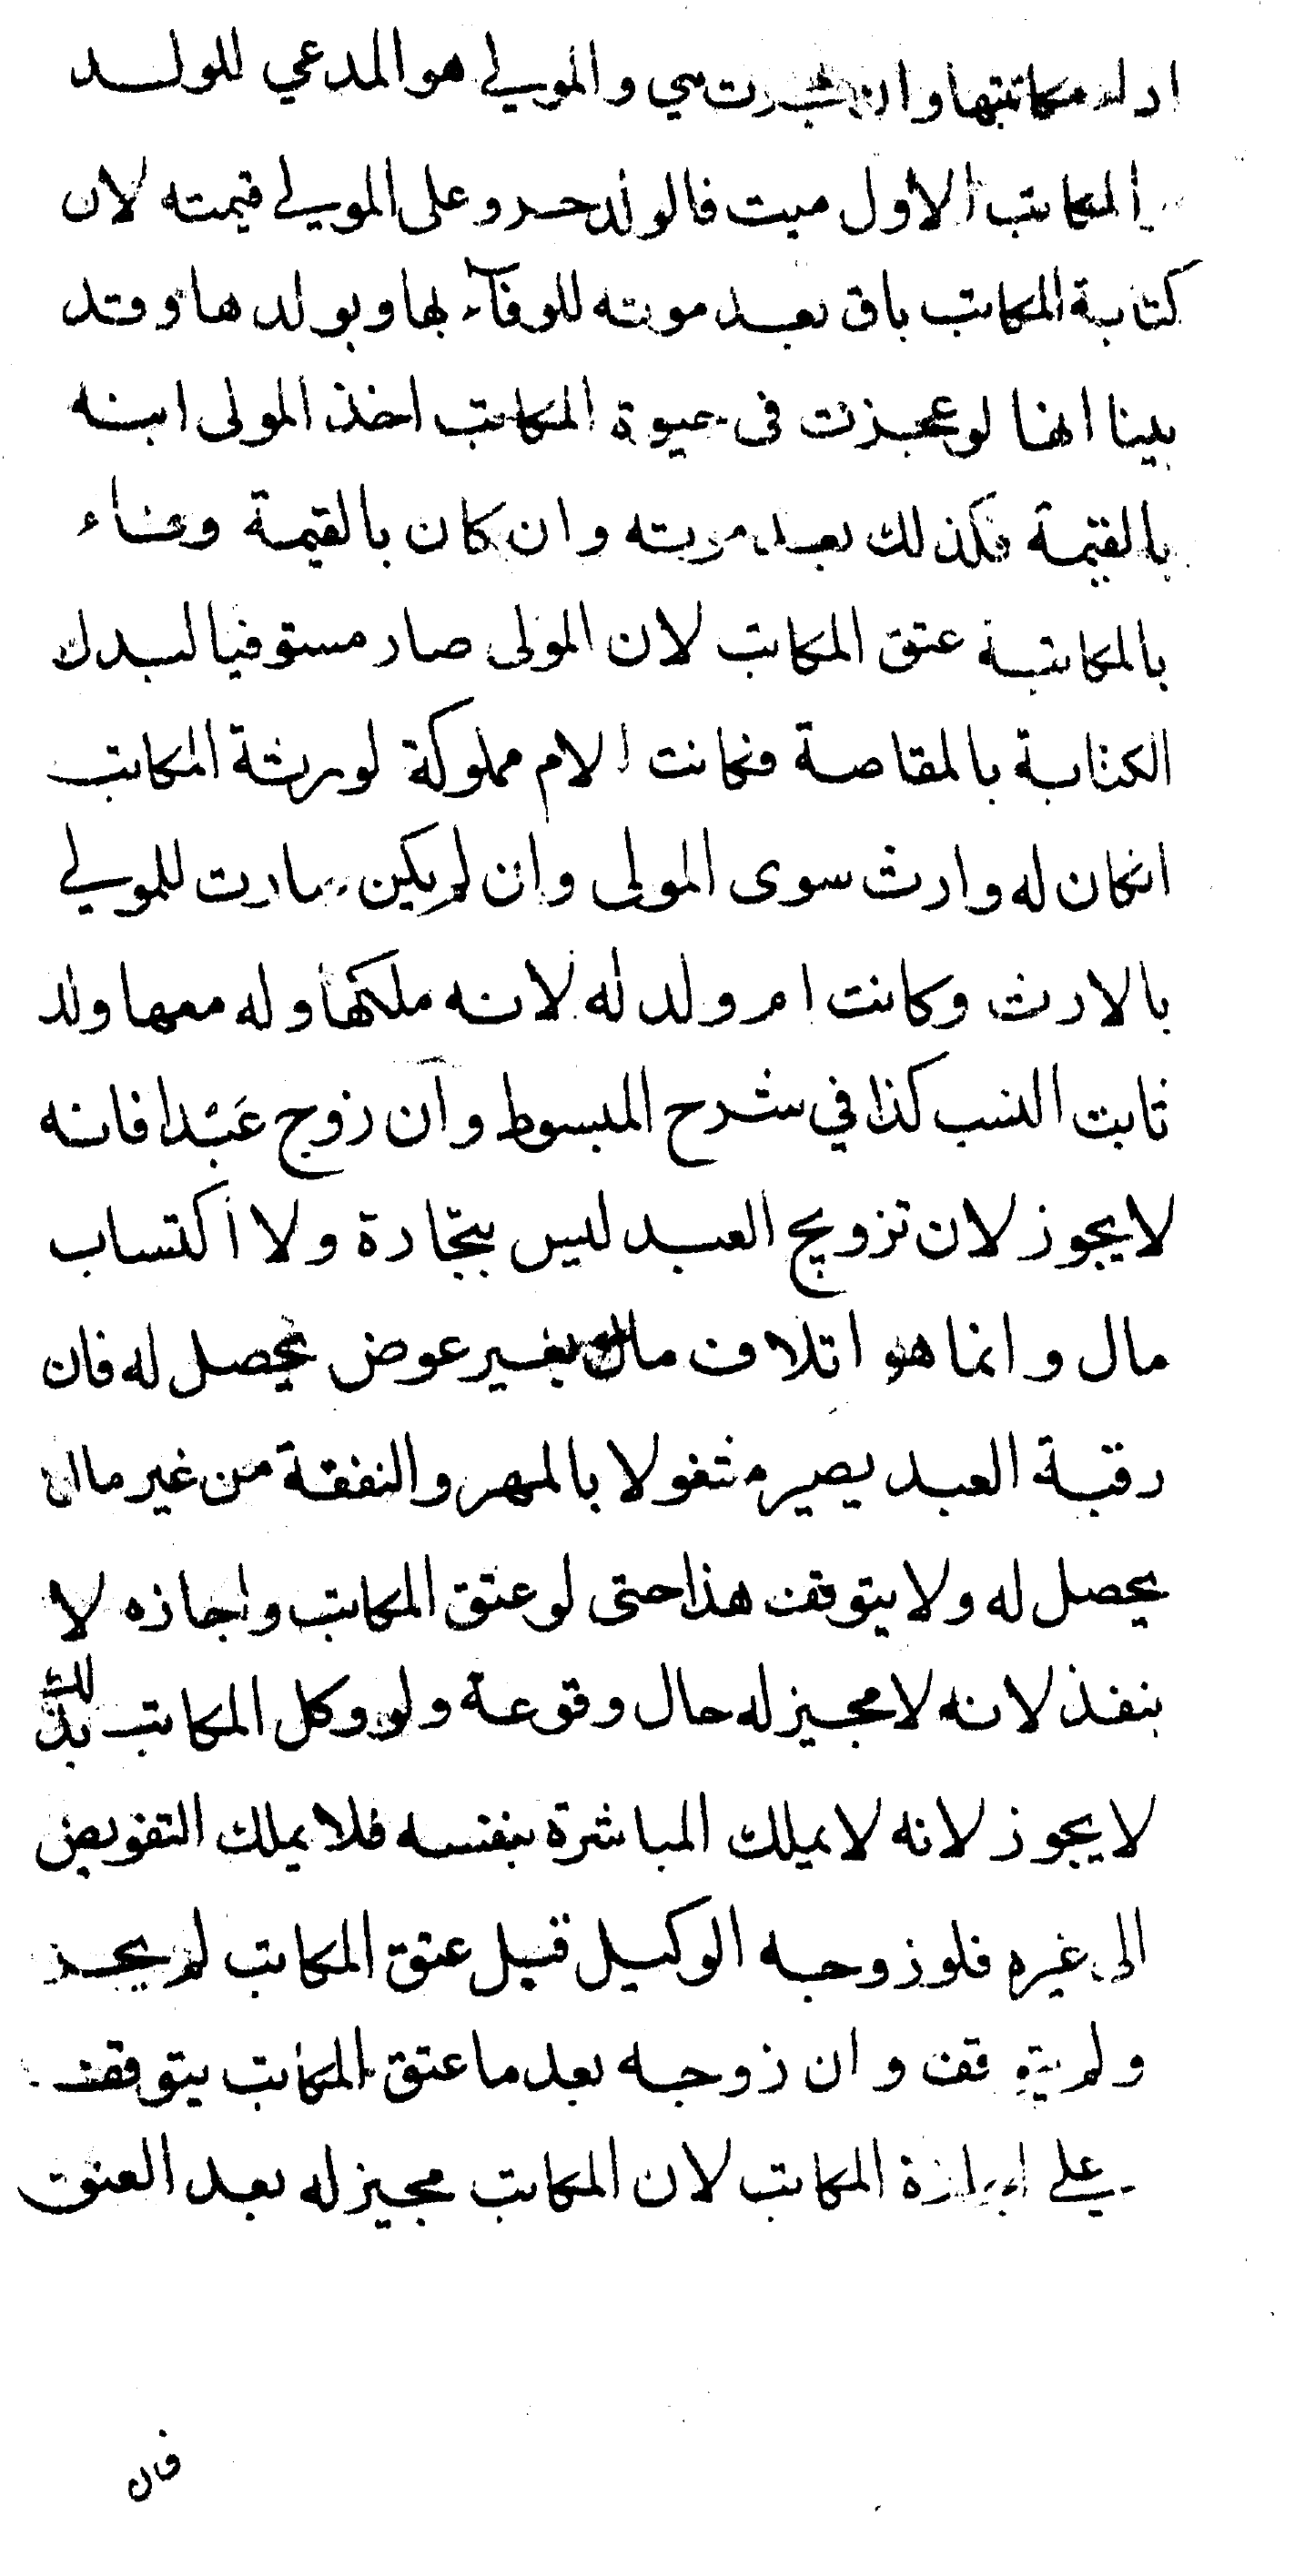 مكاتبتها وان عجزت هي والمولي هو المدعي للولد
المكاتب الاول ميت فالولد حر وعلى المولي قيمته لان
كتابة المكاتب باق بعد موته للوفآء بها وبولدها وقد
بينا انها لو عجزت فى حيوة المكاتب اخذ المولى ابنه
بالقيمة فكذلك بعد موته وان كان بالقيمة وفاء
بالمكاتبة عتق المكاتب لان المولى صار مستوفيا لبدل
الكتابة بالمقاصة فكانت الام مملوكة لورثة المكاتب
انكان له وارث سوى المولى وان لم يكن صارت للمولي
بالارث وكانت ام ولد له لانه ملكها وله معها ولد
ثابت النسب كذا في شرح المبسوط وان زوج عَبْدا فانه
لا يجوز لان تزويج العبد ليس بتجارة ولا اكتساب
مال وانما هو اتلاف مال بغير عوض يحصل له فان
رقبة العبد يصير مشغولا بالمهر والنفقة من غير مال
يحصل له ولا يتوقف هذا حتى لو عتق المكاتب واجازه لا
ينفذ لانه لا مجيز له حال وقوعة ولو وكل المكاتب بذلك
لا يجوز لانه لا يملك المباشرة بنفسه فلا يملك التفويض
الى غيره فلو زوجه الوكيل قبل عتق المكاتب لم يجز
ولم يتوقف وان زوجه بعد ما عتق المكاتب يتوقف
علي اجازة المكاتب لان المكاتب مجيز له بعد العتق
فان